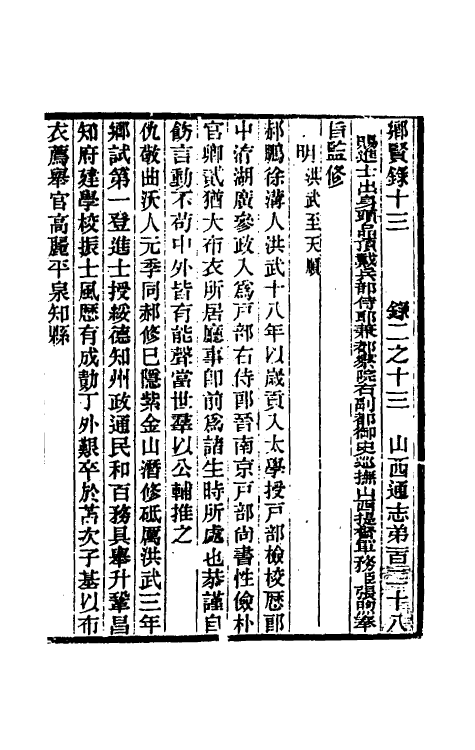 鄉賢錄十三　　錄二之十三　山西通志弟百二十八
賜進士出身頭品頂戴兵部侍郎兼都察院右副都御史巡撫山西提督軍務臣張煦奉
旨監修
明洪武至天順
郝鵬徐溝人洪武十八年以歲貢入太學授戶部檢校歷郎
中洊湖廣參政入爲戶部右侍郎晉南京戶部尚書性儉朴
官卿貳猶大布衣所居廳事卽前爲諸生時所處也恭謹自
飭言動不苟中外皆有能聲當世羣以公輔推之
仇敬曲沃人元季同郝修已隱紫金山潛修砥厲洪武三年
鄉試第一登進士授綏德知州政通民和百務具舉升鞏昌
知府建學校振士風歷有成勣丁外艱卒於苫次子基以布
衣薦舉官高麗平泉知縣